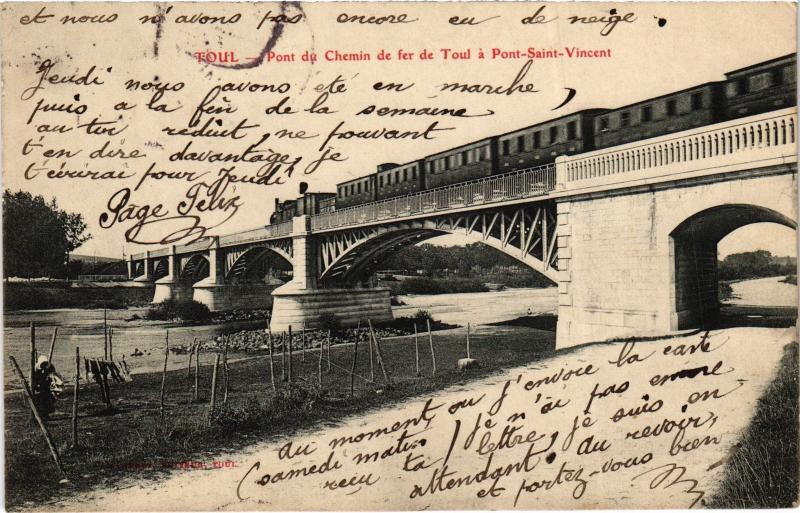 et nous n'avons pas encore eu de neige.
TOUL — Pont du Chemin de fer de Toul à Pont-Saint-Vincent
Jeudi nous avons été en marche,
puis a la fin de la semaine
au tir réduit, ne pouvant
t'en dire davantage, je
t'écrirai pour Jeudi
Page
au moment, ou j'envoie la carte
(samedi matin) je n'ai pas encore
recu ta lettre, je suis en
attendant. au revoir,
et portez-vous bien
TOUL